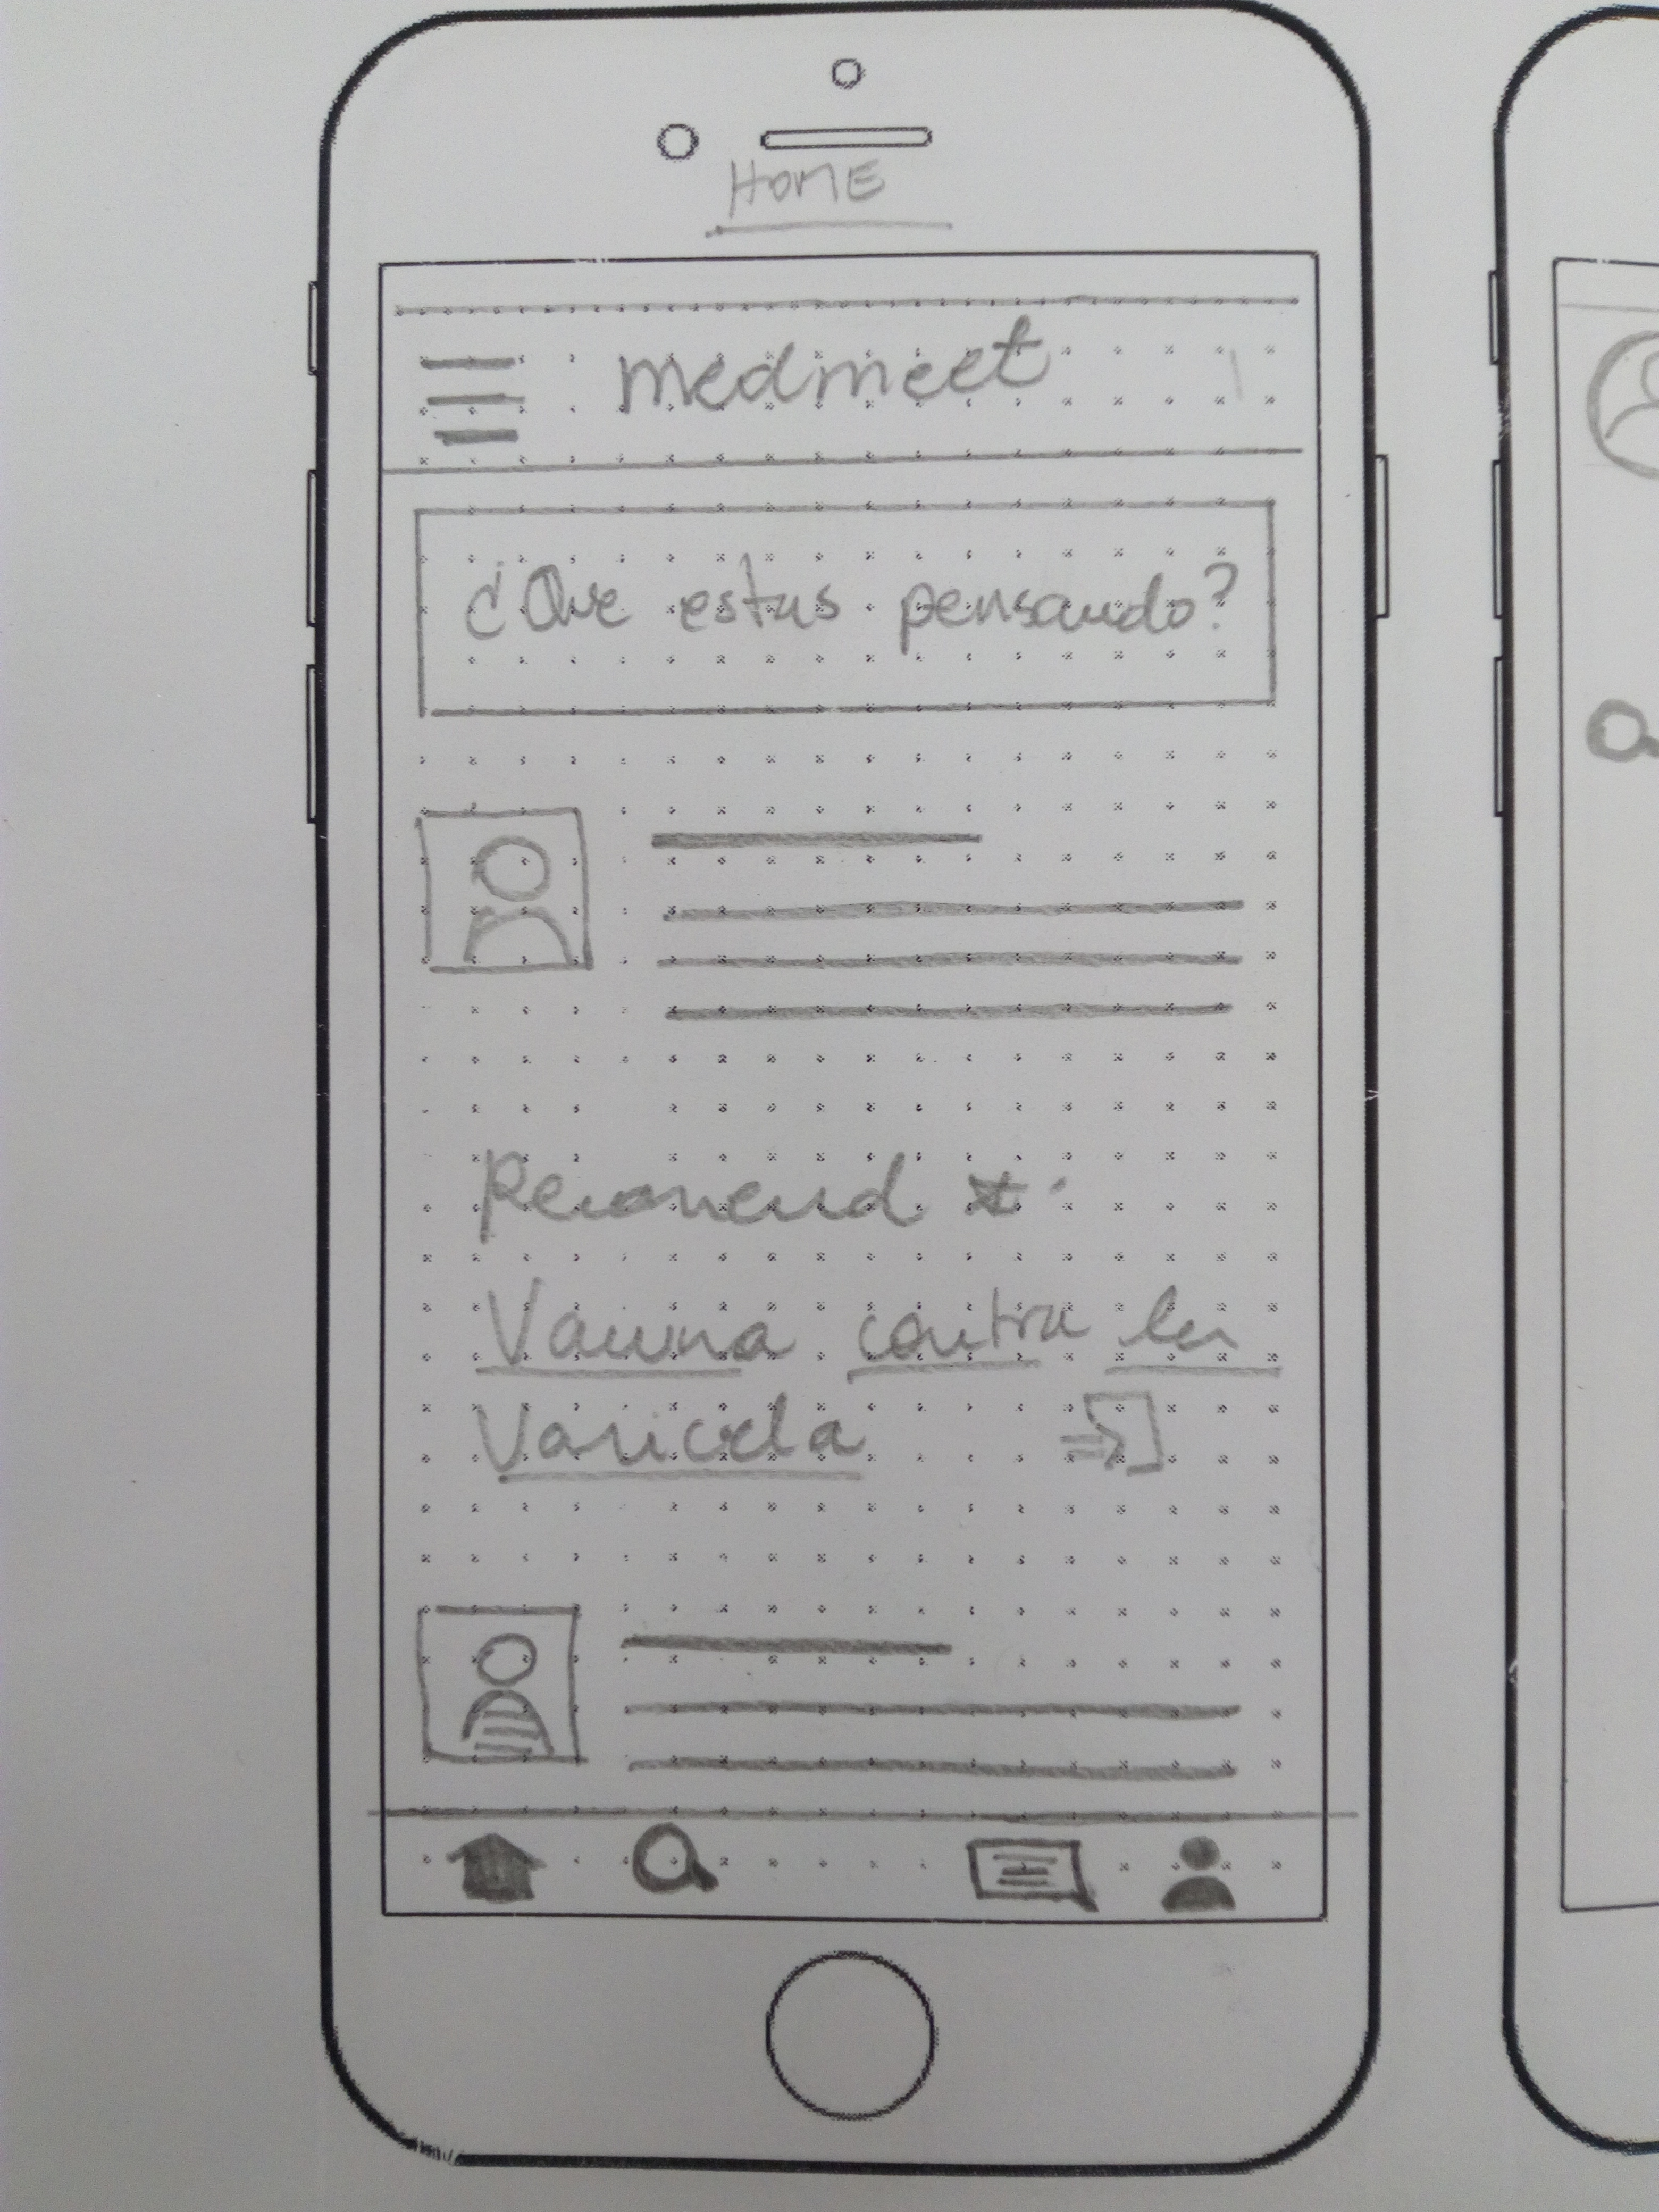 HOME
medmeet
¿Que estas pensando?
Recomend
Vacuna contra la
Varicela